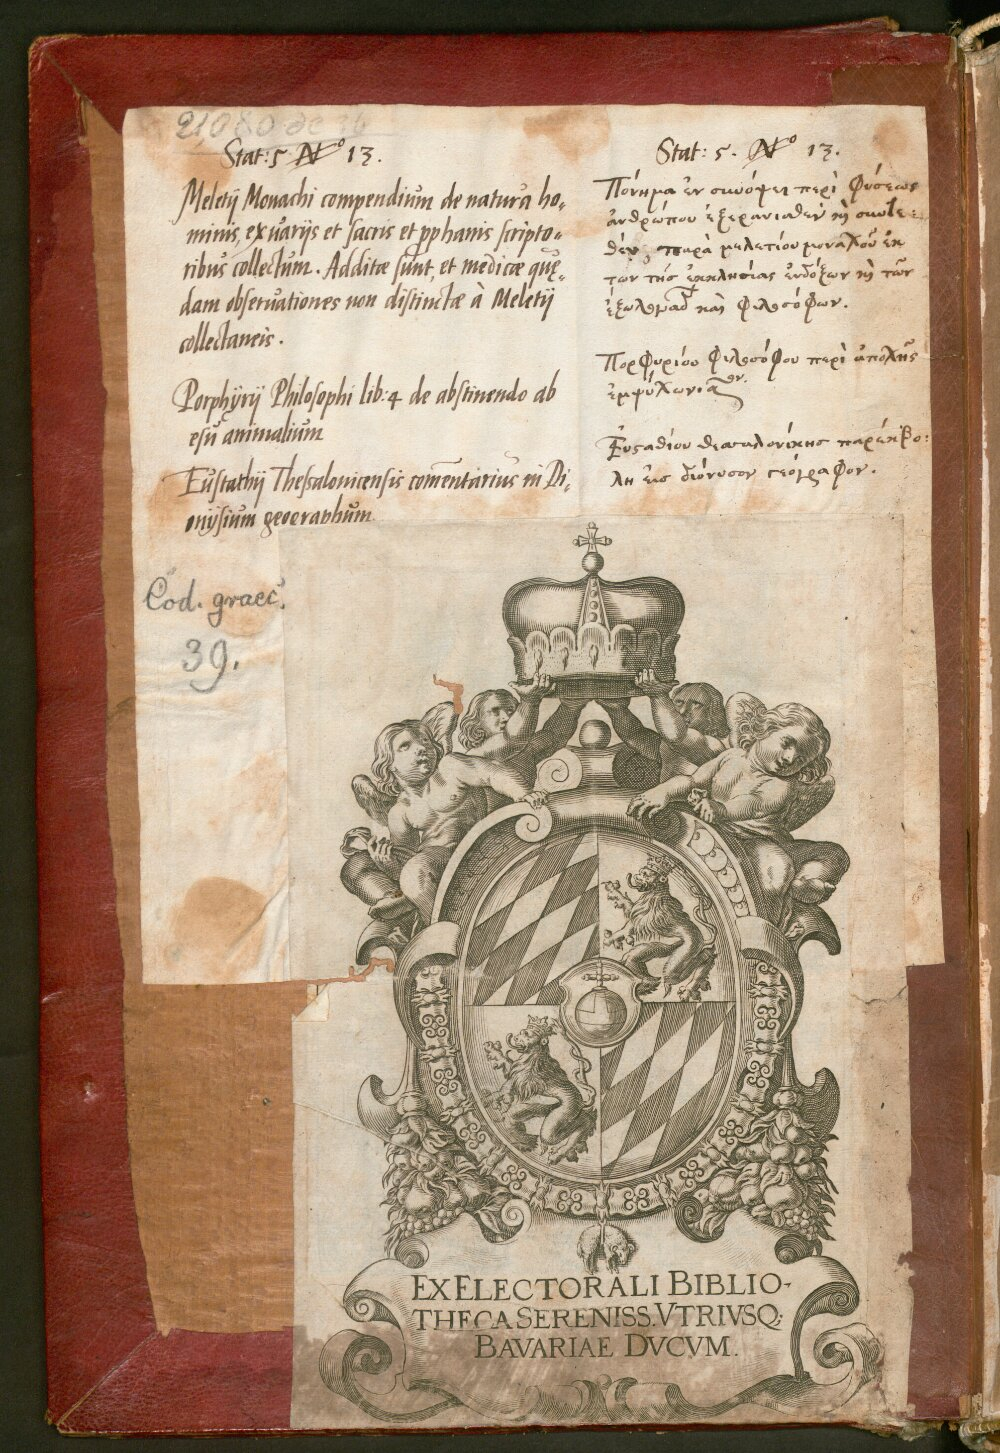 Stat: 5 No 13.
Meletij Monachi compendium de natura ho,
minis, ex varijs et sacris et pphanis scripto-
ribus collectum. Additæ sunt, et medicæ quę-
dam obseruationes non distinctæ à Meletij
collectaneis.
Porphyrij Philosophi lib: 4 de abstinendo ab
esu animalium
Eustathij Thessalonicensis comentarius in Di,
onysium geographum
Stat: 5. No 13.
Πόνημα ἐν συνόψει περὶ φύσεως
ἀνθρώπου
παρὰ μελετίου μοναχοῦ ἐκ
τῶν τῆς ἐκκλησίας ἐνδόξων καὶ τῶν
καὶ φιλοσόφων.
Πορφυρίου φιλοσόφου περὶ ἀποχῆς
ἐμψύχων
Εὐσταθίου θεσσαλονίκης παρεκβο:
λὴ εἰς διόνυσον γεόγραφον.
Cod. graec.
39.
EX ELECTORALI BIBLIO-
THECA SERENISS. VTRIVSQ;
BAVARIAE DVCVM.